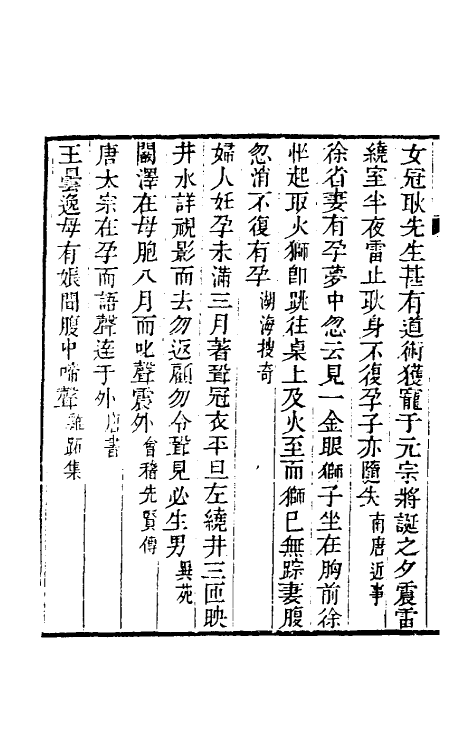 女冠耿先生甚有道術獲寵于元宗將誕之夕震雷
繞室半夜雷止耿身不復孕子亦隨失南唐近事
徐省妻有孕夢中忽云見一金眼獅子坐在胸前徐
怪起取火獅卽跳往桌上及火至而獅已無踪妻腹
忽消不復有孕湖海搜奇
婦人妊孕未滿三月著壻冠衣平旦左繞井三匝映
井水詳視影而去勿返顧勿令壻見必生男異苑
闞澤在母胞八月而叱聲震外會稽先賢傳
唐太宗在孕而語聲達于外唐書
王曇逸母有娠聞腹中啼聲雞跖集